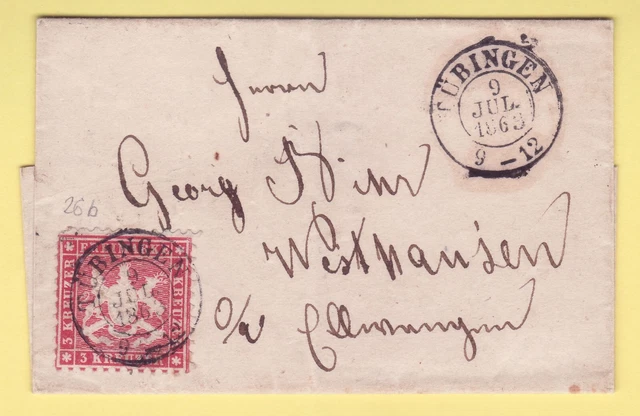 TÜBINGEN
9
JUL
1863
9 - 12
Herrn
Georg
Westhausen
o/a Ellwangen
26b
TÜBINGEN
9
JUL
186
9
3 KREUZER
3 KREUZER
KREUZER